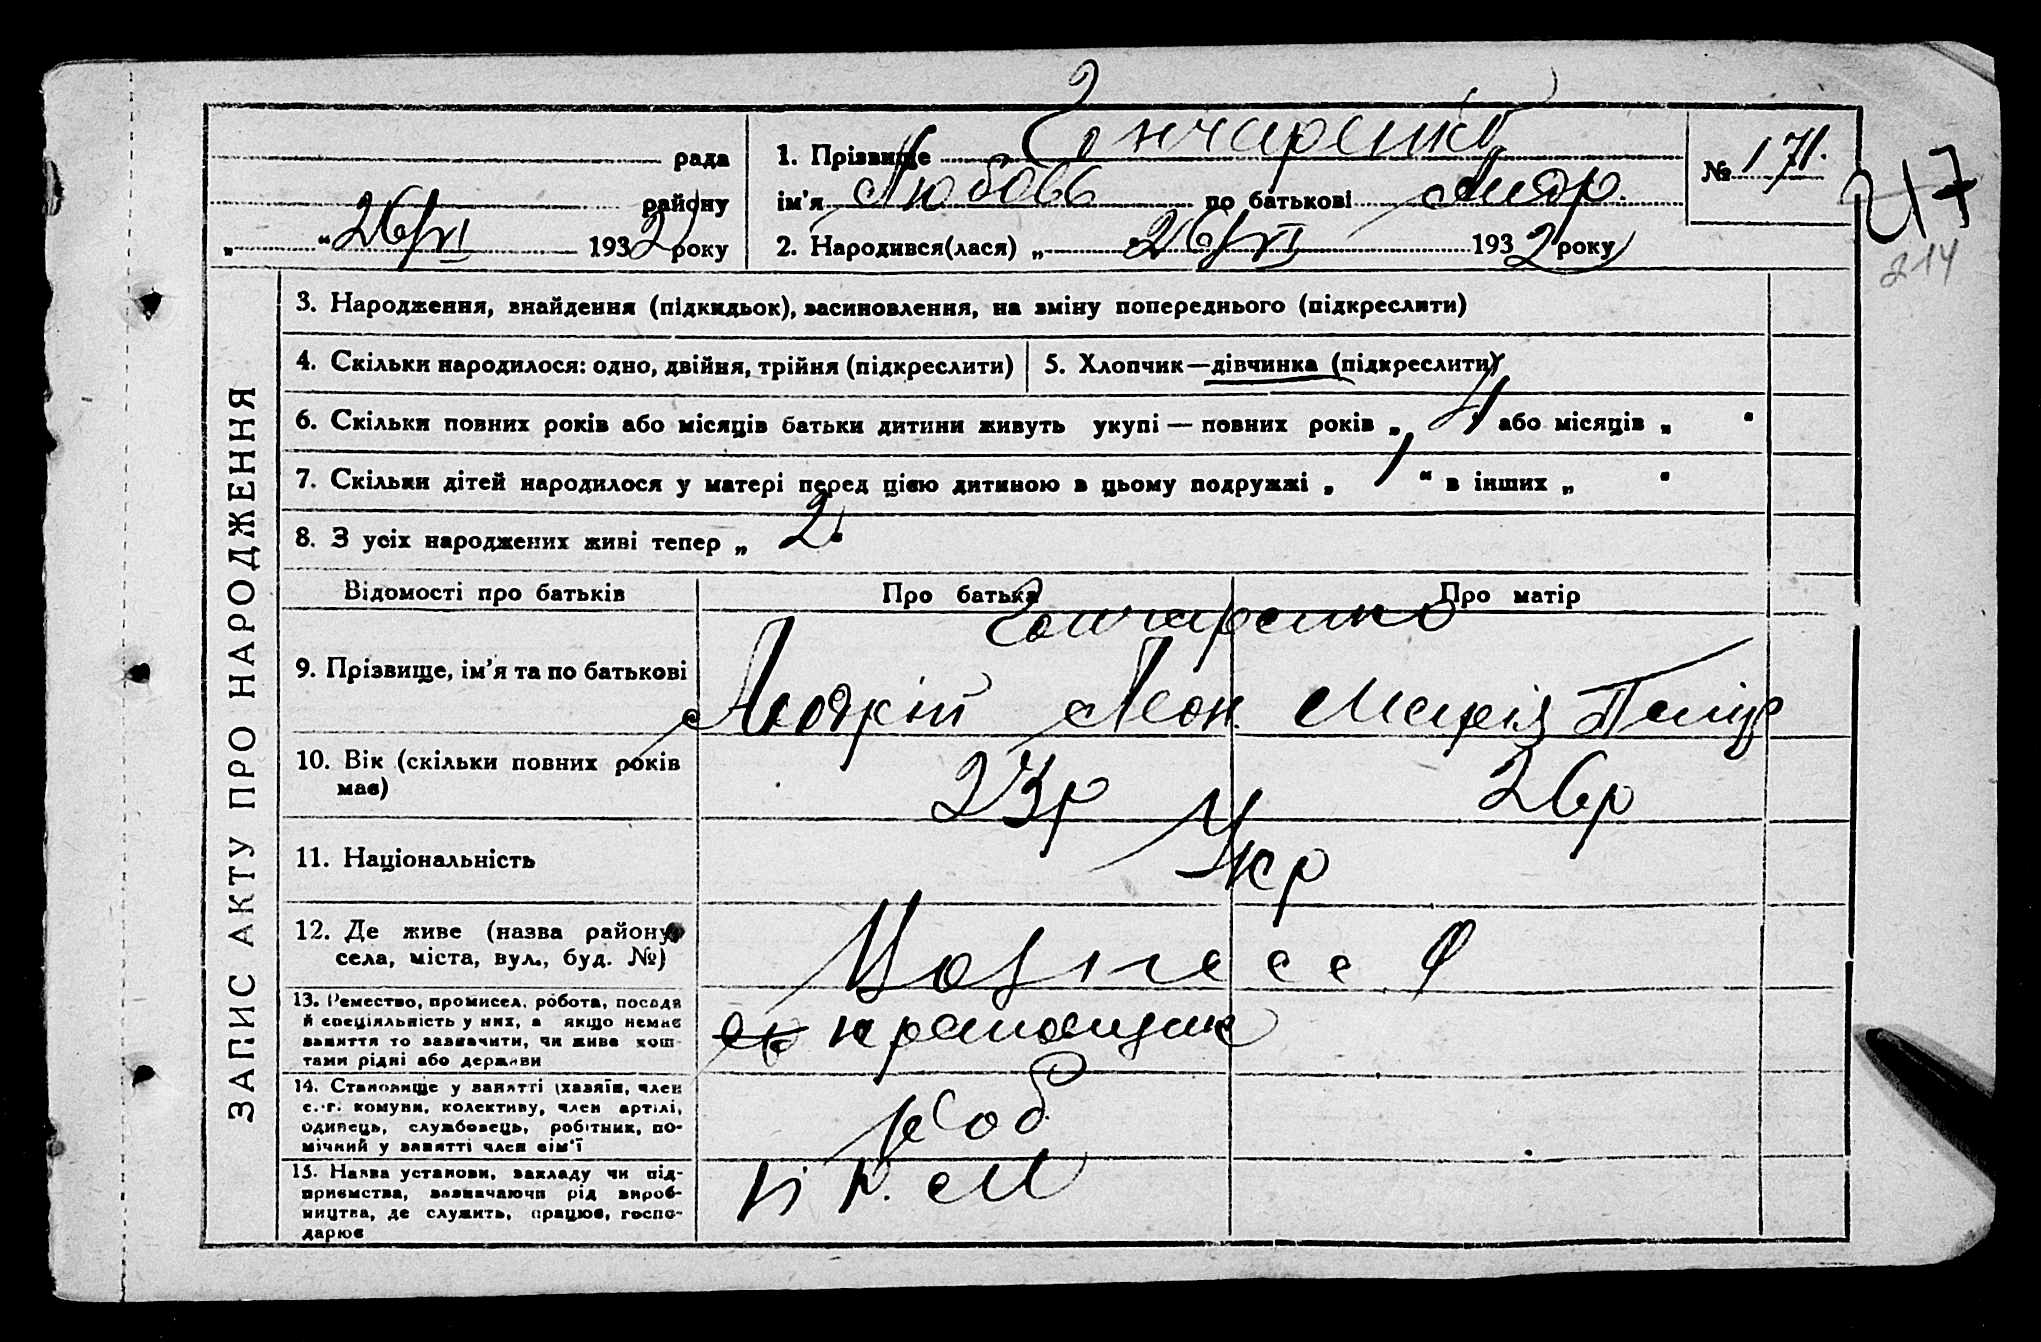 рада
району
„ “ 26/VI 1932 року
1. Прізвище Гончаренко
ім'я Любовь по батькові Андр.
2. Народився(лася) „ 26/VI 1932 року
№ 171.
217
214
ЗАПИС АКТУ ПРО НАРОДЖЕННЯ
3. Народження, знайдення (підкидьок), засиновлення, на зміну попереднього (підкреслити)
4. Скільки народилося: одно, двійня, трійня (підкреслити)
5. Хлопчик—дівчинка (підкреслити)
6. Скільки повних років або місяців батьки дитини живуть укупі — повних років „ 4 або місяців „ “
7. Скільки дітей народилося у матері перед цією дитиною в цьому подружжі „ 1 “ в інших „ “
8. З усіх народжених живі тепер „ 2.
Відомості про батьків
Про батька
Про матір
9. Прізвище, ім'я та по батькові
Гончаренко
Андрій Леон. Марія
10. Вік (скільки повних років
має)
23р 26р
11. Національність
Укр
12. Де живе (назва району,
села, міста, вул., буд. №)
13. Ремество, промисел, робота, посада
й спеціяльність у них, а якщо немає
заняття то зазначити, чи живе кош-
тами рідні або держави
14. Становище у занятті (хазяїн, член
с.-г. комуни, колективу, член артілі,
одинець, службовець, робітник, по-
мічний у занятті член сім'ї
Роб
15. Назва установи, закладу чи під-
приємства, зазначаючи рід вироб-
ництва, де служить, працює, госпо-
дарює